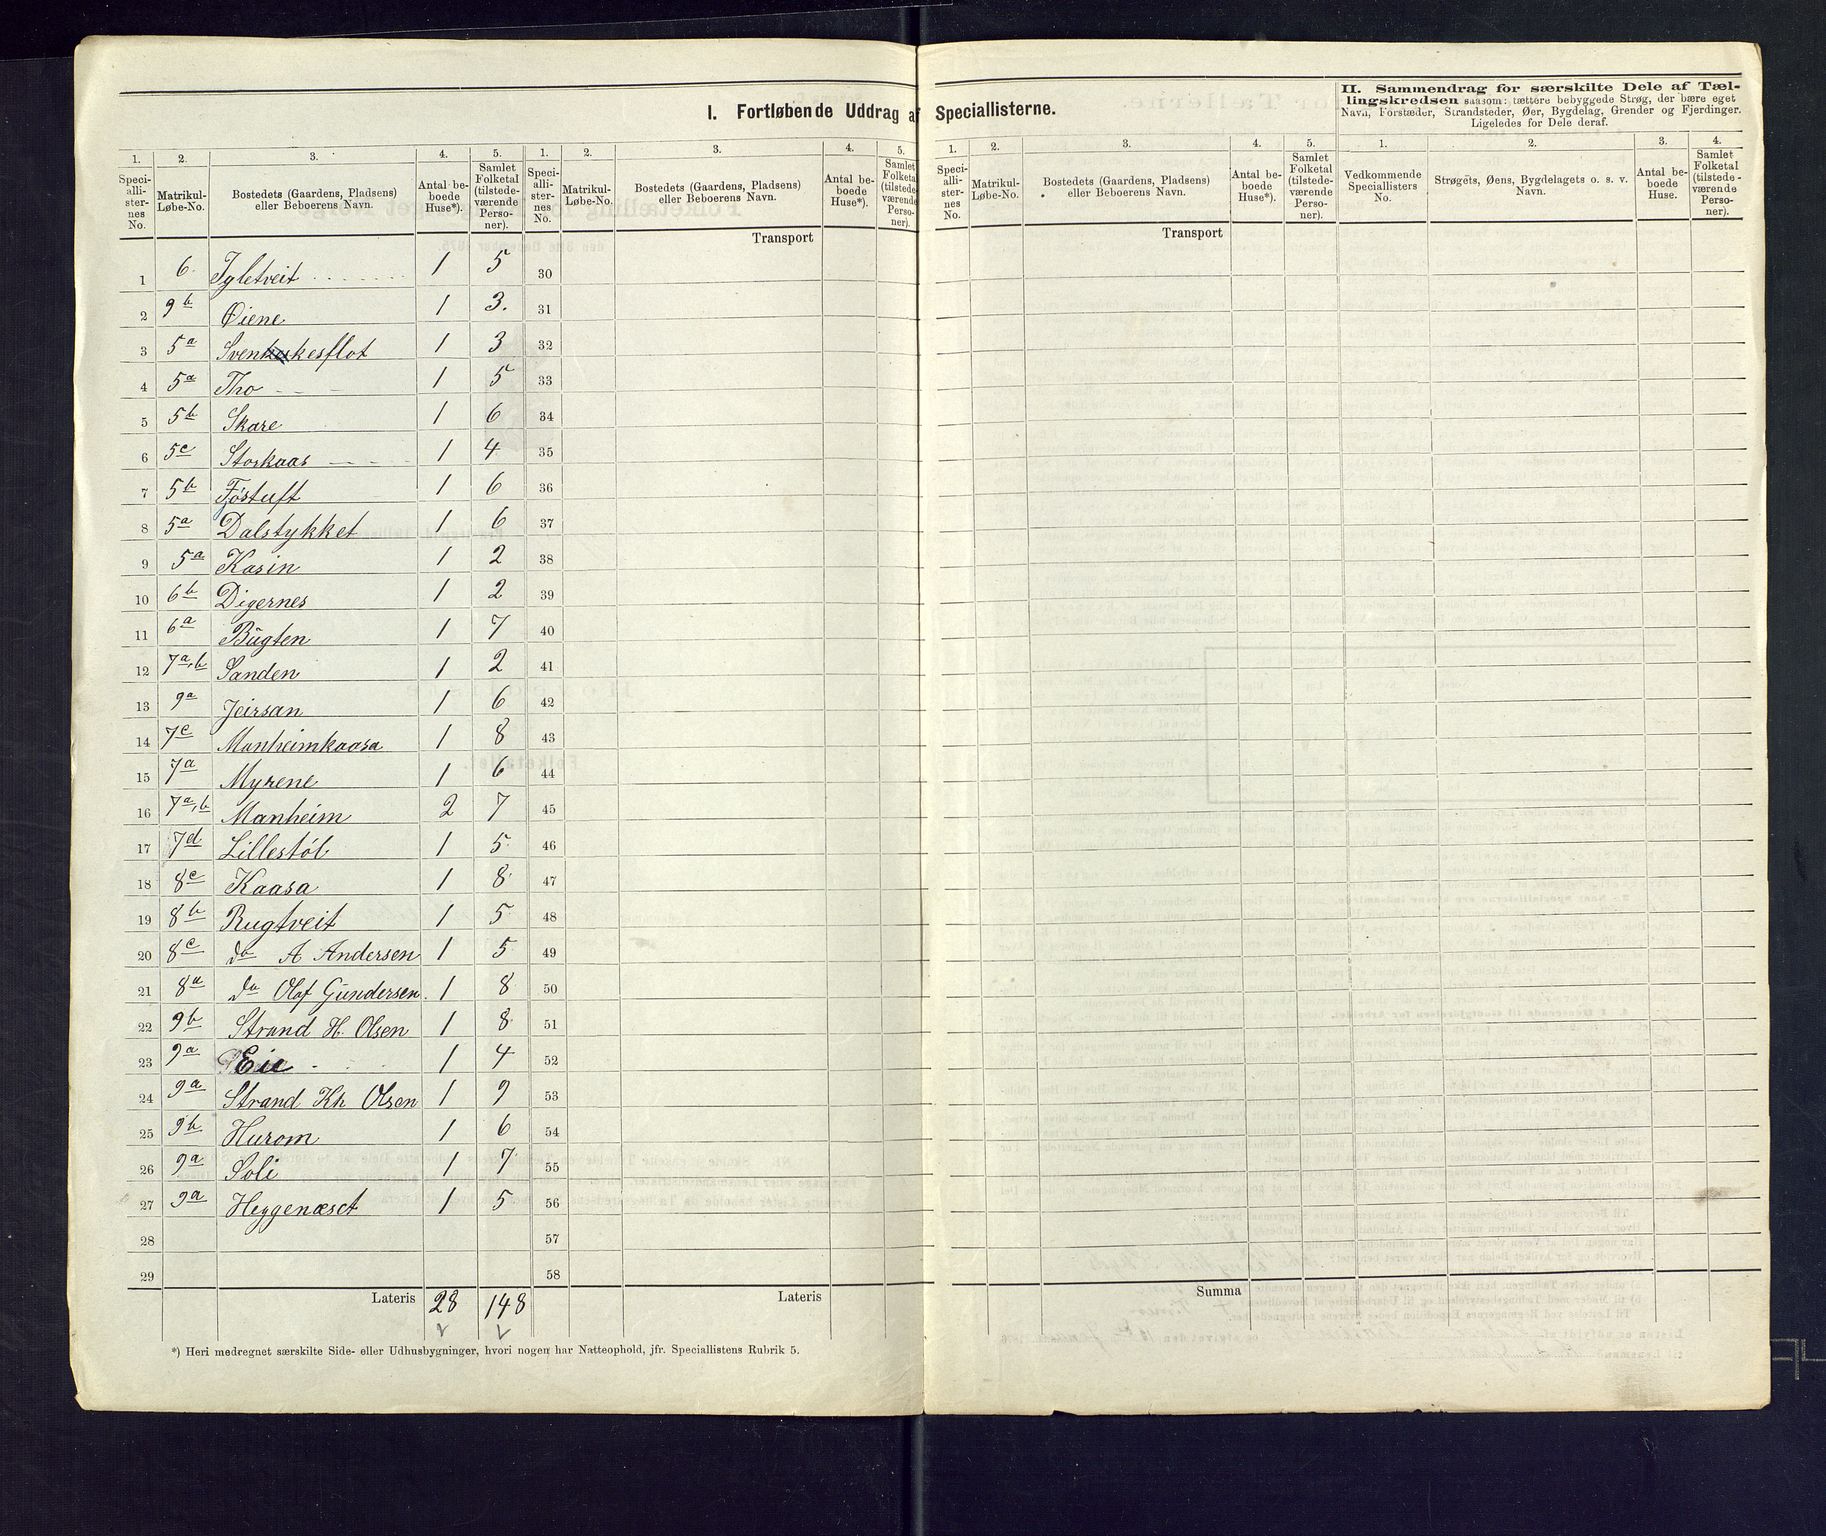 I. Fortløbende Uddrag af Speciallisterne.
II. Sammendrag for særskilte Dele af Tæl-
lingskredsen saasom: tættere bebyggede Strøg, der bære eget
Navn, Forstæder, Strandsteder, Øer, Bygdelag, Grender og Fjerdinger.
Ligeledes for Dele deraf.
1. 2. 3. 4. 5. 1. 2. 3. 4. 5. 1. 2. 3. 4. 5. 1. 2. 3. 4.
Speci-alli-ster-nes No. Matrikul-Løbe-No. Bostedets (Gaardens, Pladsens) eller Beboerens Navn. Antal be-boede Huse*). Samlet Folketal (tilstede-værende Perso-ner).
Speci-alli-ster-nes No. Matrikul-Løbe-No. Bostedets (Gaardens, Pladsens) eller Beboerens Navn. Antal be-boede Huse*). Samlet Folketal (tilstede-værende Perso-ner).
Speci-alli-ster-nes No. Matrikul-Løbe-No. Bostedets (Gaardens, Pladsens) eller Beboerens Navn. Antal be-boede Huse*). Samlet Folketal (tilstede-værende Perso-ner).
Vedkommende Speciallisters No. Strøgets, Øens, Bygdelagets o. s. v. Navn. Antal be-boede Huse. Samlet Folketal (tilstede-værende Perso-ner).
Transport Transport
1 6. Tyletveit 1 5 30
2 9b Øiene 1 3. 31
3 5a Svenkesflot 1 3 32
4 5a Tho 1 5 33
5 5b Skare 1 6 34
6 5c Storkaas 1 4 35
7 5b Føstuft 1 6 36
8 5a Dalstykket 1 6 37
9 5a Kasin 1 2 38
10 6b Digernes 1 2 39
11 6a Bugten 1 7 40
12 7a,b Sanden 1 2 41
13 9a Jeirsan 1 6 42
14 7c Manheimkaasa 1 8 43
15 7a Myrene 1 6 44
16 7a,b Manheim 2 7 45
17 7d Lillestøl 1 5 46
18 8c Kaasa 1 8 47
19 8b Rugtveit 1 5 48
20 8c do A Andersen 1 5 49
21 8a do Olaf Gundersen 1 8 50
22 9b Strand H. Olsen 1 8 51
23 9a Eie 1 4 52
24 9a Strand Kh Olsen 1 9 53
25 9b Hurom 1 6 54
26 9a Soli 1 7 55
27 9a Heggenæset 1 5 56
28 57
29 58
Lateris 28 148 Lateris Summa
*) Heri medregnet særskilte Side- eller Udhusbygninger, hvori nogen har Natteophold, jfr. Speciallistens Rubrik 5.